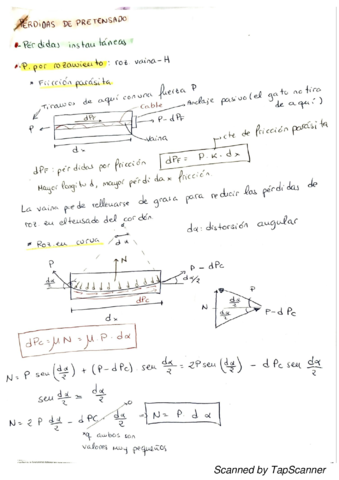 PÉRDIDAS DE PRETENSADO
• Pérdidas instantáneas
• P. por rozamiento: roz vaina-H
• Fricción parásita
Tiramos de aquí con una fuerza P
Cable
Anclaje pasivo (el gato no tira de aquí)
P
dPf
P - dPf
Vaina
dx
cte de fricción parásita
dPf: pérdidas por fricción
dPf = P · K · dx
Mayor longitud, mayor pérdida x fricción.
La vaina puede rellenarse de grasa para reducir las pérdidas de
roz en el tensado del cordón.
dα: distorsión angular
• Roz. en curva
dx
P
N
P - dPc
dα/2
dα/2
dPc
dx
N
dα/2
dα/2
P
P - dPc
dPc = μN = μ P · dα
N = P sen(dα/2) + (P - dPc) sen dα/2 = 2P sen(dα/2) - dPc sen dα/2
sen dα/2 ≈ dα/2
N = 2P dα/2 - dPc · dα/2 → 0
N = P · dα
*q ambos son
valores muy pequeños
Scanned by TapScanner